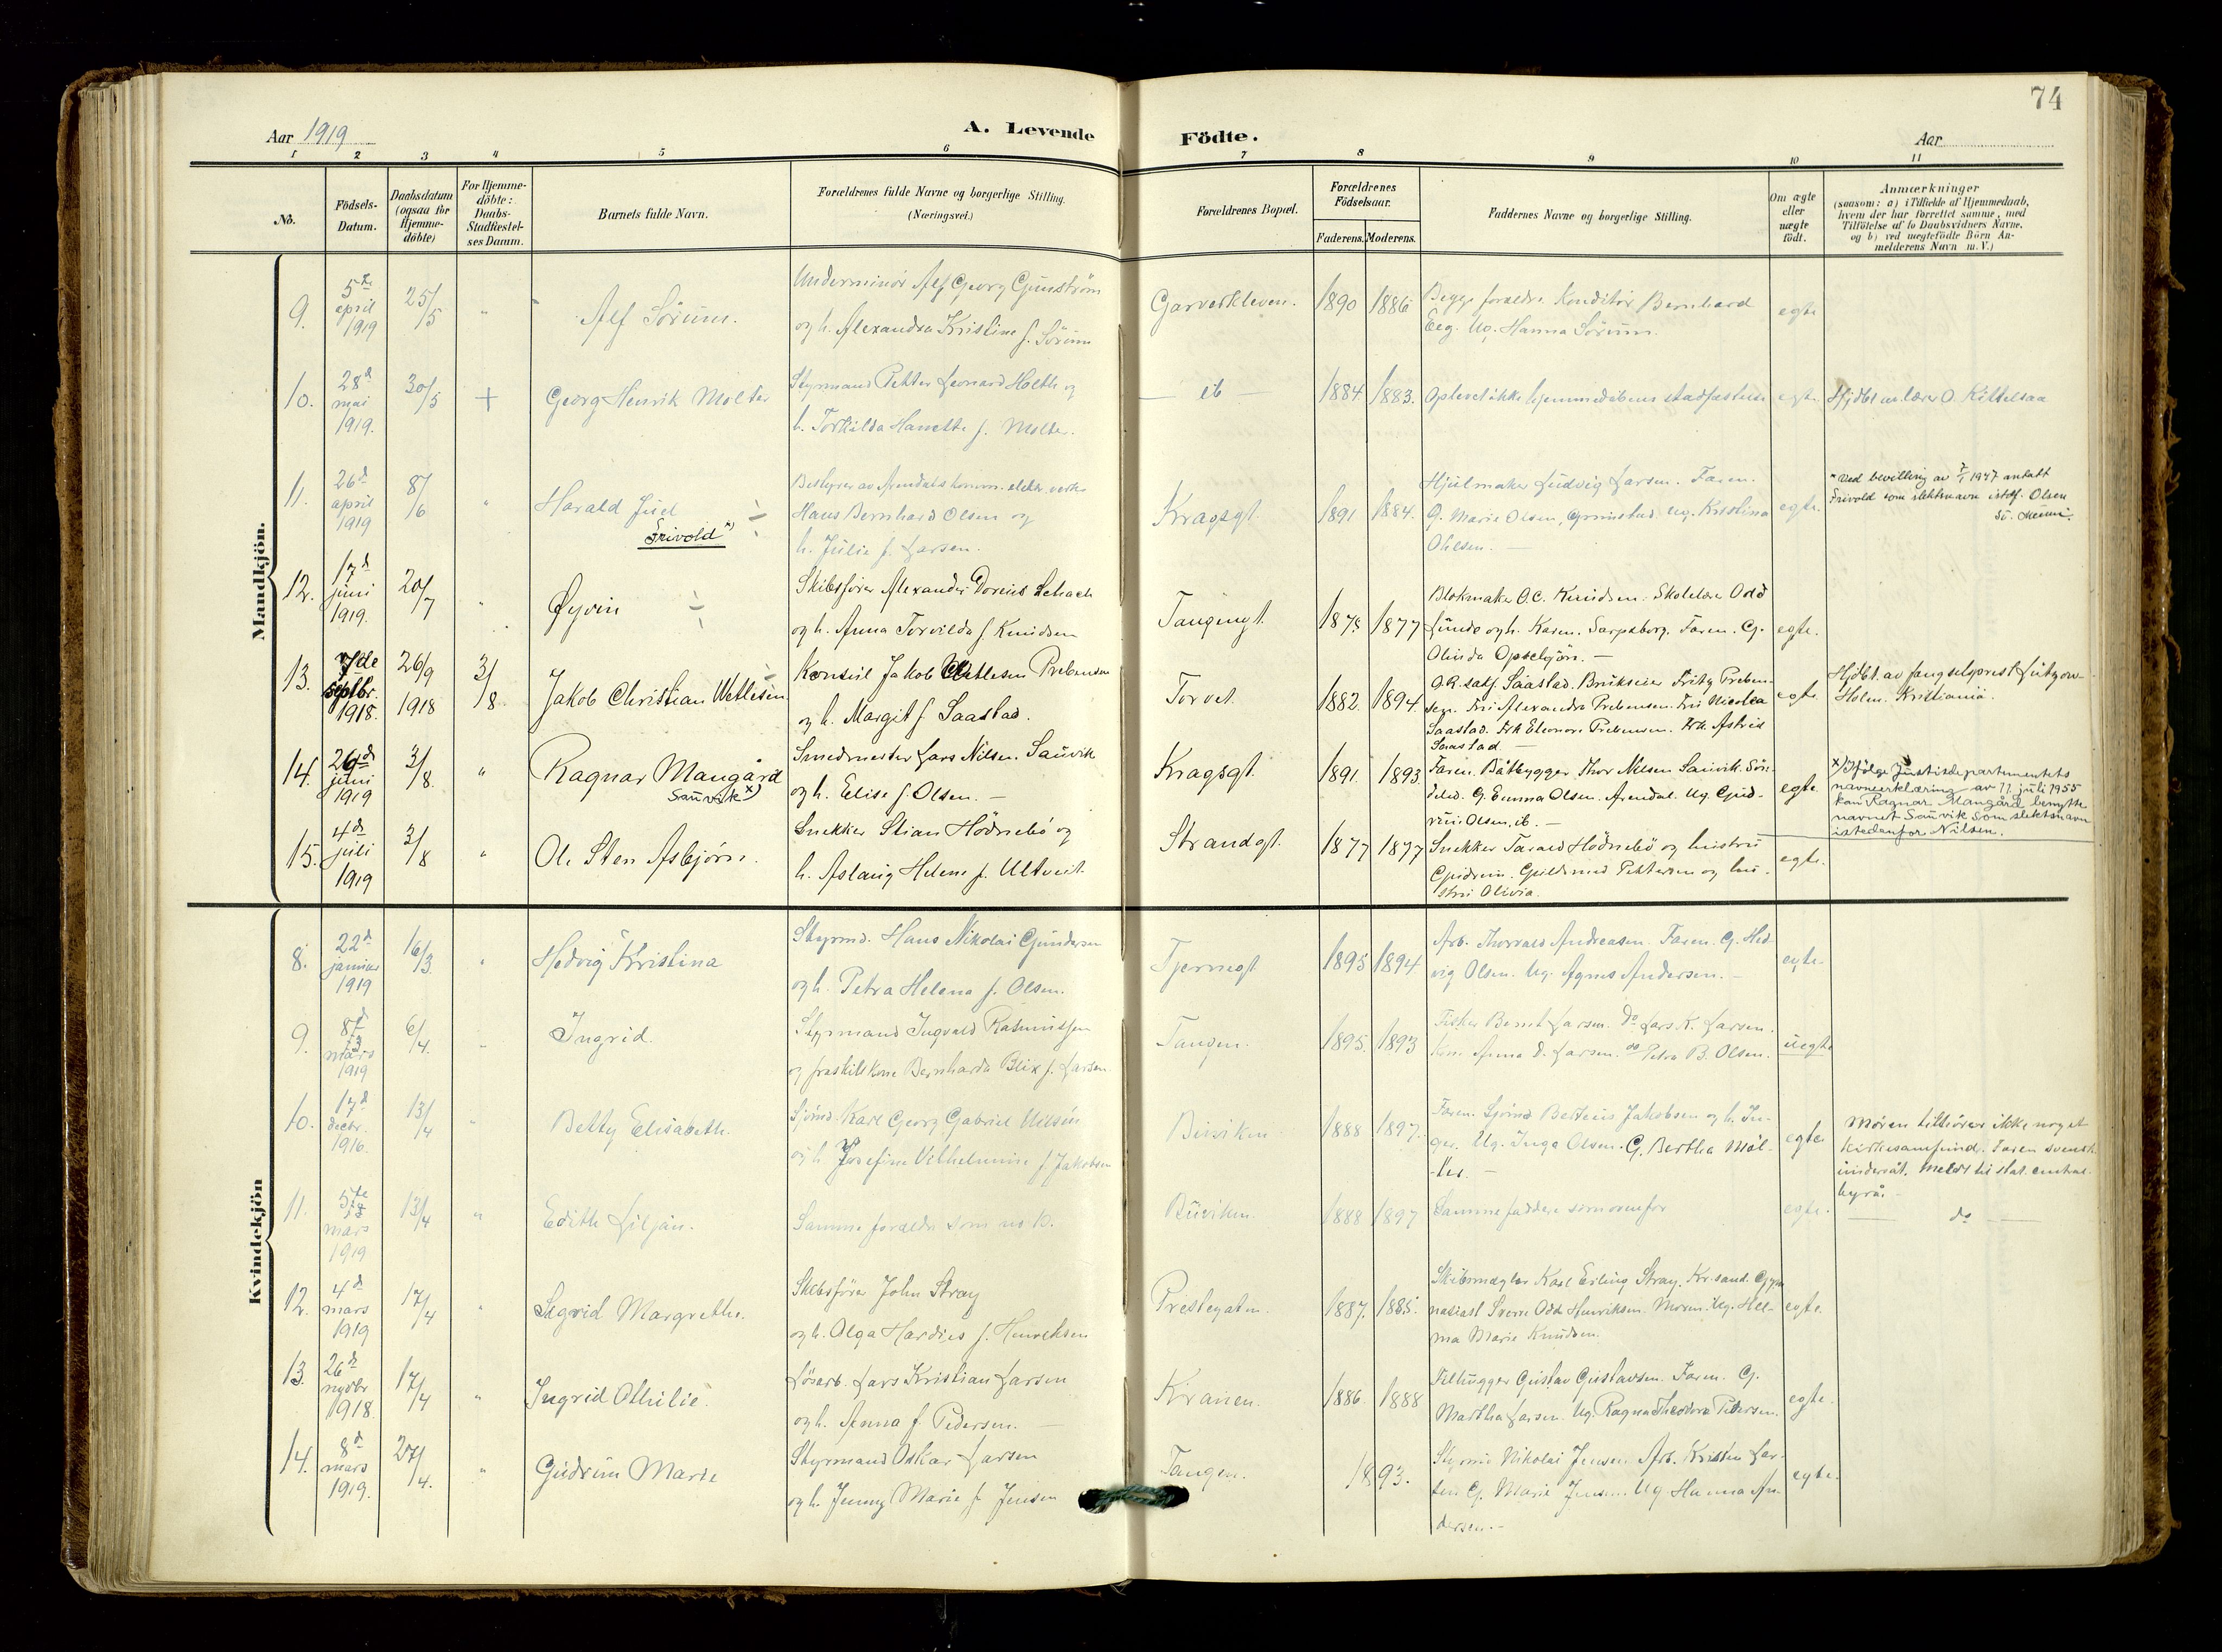 74
Aar 1919
A. Levende Födte.
Aar
1 2 3 4 5 6 7 8 9 10 11
No.
Födsels-
Datum.
Daabsdatum
(ogsaa for
Hjemme-
döbte)
For Hjemme-
döbte:
Daabs-
Stadfestel-
ses Datum.
Barnets fulde Navn.
Forældrenes fulde Navne og borgerlige Stilling.
(Næringsvei.)
Forældrenes Bopæl.
Forældrenes
Födselsaar.
Faderens. Moderens.
Faddernes Navne og borgerlige Stilling.
Om ægte
eller
uægte
født.
Anmærkninger
(saasom: a) i Tilfælde af Hjemmedaab,
hvem der har forrettet samme, med
Tilföielse af to Daabsvidners Navne.
og b) ved uegtefödte Börn An-
melderens Navn m. V.)
Mandkjön.
9.
5te
april
1919
25/5
"
Alf Sörum.
Underminör Alf Georg Gunström
og h. Alexandra Kristine f. Sörum
Garverkleven.
1890
1886
Begge foreldre. Konditor Bernhard
Eeg. Ug. Hanna Sörum.
egte
10.
28d
mai
1919.
30/5
+
Georg Henrik Molter
Styrmand Petter Leonard Holth og
h. Torkilda Hanette f. Molter.
— ib —
1884.
1883.
Oplevet ikke hjemmedåbens stadfestelse
egte.
Hjdbt av lærer O. Kittelsaa
11.
26d
april
1919
8/6
"
Harald Juel
Frivold x)
Bestyrer av Arendals komm. elektr. verk
Hans Bernhard Olsen og
h. Julie f. Larsen.
Kragsgt.
1891
1884.
Hjulmaker Ludvig Larsen. Faren.
G. Marie Olsen, Grimstad. Ug. Kristina
Ohlsen. —
egte.
x Ved bevilling av 7/1 1947 antatt
Frivold som slektsnavn istdf. Olsen
12.
17d
juni
1919.
20/7
"
Øyvin
Skibsfører Alexander Dorenis Schach
og h. Anna Torvilda f. Knudsen
Tangengt.
1875
1877
Blokmaker O.C. Knudsen. Skolelærer Odd
Lunde og h. Karen. Sarpsborg. Faren. G.
Olinda Opsehjön. —
egte.
13.
7de
septbr.
1918.
26/9
1918
3/8
Jakob Christian Wetlesen
Konsul Jakob Wetlesen Prebensen
og h. Margit f. Saastad.
Torvet.
1882.
1894.
O.R. satf. Saastad. Brukseier Fritz Preben-
sen. Fru Alexandra Prebensen. Fru Nicolea
Saastad. Frk Eleonore Prebensen. Frk. Astrid
Saastad. —
egte.
Hjdbt. av fængselsprest Lützow-
Holm. Kristiania.
14.
26d
juni
1919
3/8.
"
Ragnar Mangård
Sauvik x)
Smedmester Lars Nilsen. Sauvik
og h. Elise f. Olsen. —
Kragsgt.
1891.
1893
Faren. Båtbygger Thor Nilsen Sauvik. Sön-
deled. G. Emma Olsen. Arendal. Ug. Gud-
run Olsen, ib. —
egte.
x) Ifølge Justisdepartementets
navneerklæring av 11. juli 1955
kan Ragnar Mangård benytte
navnet Sauvik som slektsnavn
istedenfor Nilsen.
15.
4d
juli
1919
3/8
"
Ole Sten Asbjørn.
Snekker Stian Hödnebö og
h. Aslaug Helene f. Ultveit.
Strandgt.
1877
1877
Snekker Tarald Hödnebö og hustru
Gudrun. Guldsmed Pettersen og hu-
stru Olivia.
egte.
Kvindekjön
8.
22d
januar
1919
16/3.
"
Hedvig Kristina
Styrmd. Hans Nikolai Gundersen
og h. Petra Helena f. Olsen.
Tjernegt
1895
1894
Arb. Thorvald Andreasen. Faren. G. Hed-
vig Olsen. Ug. Agnes Andersen. —
egte
9.
8d
mars
1919
6/4.
Ingrid.
Styrmand Ingvald Rasmussen
og fraskilt kone Bernharda Blix f. Larsen
Tangen.
1895.
1893
Fisker Bernt Larsen. do Lars K. Larsen.
Kone Anna D. Larsen. do Petra B. Olsen.
uegte
10.
17d
decbr.
1916.
13/4
"
Betty Elisabeth.
Sjömd. Karl Georg Gabriel Nilsen
og h. Josefine Vilhelmine f. Jakobsen
Buviken
1888
1897.
Faren. Sjömd Berteus Jakobsen og h. In-
ger. Ug. Inga Olsen. G. Bertha Möl-
ler. —
egte
Moren tilhører ikke noget
kirkesamfund. Faren svensk
undersåt. Meldt til stat. central-
byrå. —
11.
5te
mars
1919
13/4
"
Edith Liljan.
Samme foreldre som no 10.
Buviken.
1888
1897
Samme faddere som ovenfor
egte.
— do —
12.
4d
mars
1919
17/4
"
Sigrid Margrethe.
Skibsförer John Stray
og h. Olga Hardies f. Henriksen
Prestegaten.
1887.
1885.
Skibsmægler Karl Erling Stray. Kr.sand. Gym-
nasiast Sverre Odd Henriksen. Moren. Ug. Hel-
ma Marie Knudsen.
egte.
13.
26d
novbr
1918.
17/4
"
Ingrid Othilie.
Lösarb. Lars Kristian Larsen
og h. Anna f. Pedersen.
Kranen.
1886
1888
Filhugger Gustav Gustavsen. Faren. G.
Martha Larsen. Ug. Ragna Theodora Pedersen.
egte.
14.
8d
mars
1919.
27/4.
"
Gudrun Marie
Styrmand Oskar Larsen
og h. Jenny Marie f. Jensen
Tangen.
1893.
Styrmd Nikolai Jensen. Arb. Kristen Lar-
sen. G. Marie Jensen. Ug. Hanna An-
dersen. —
egte.